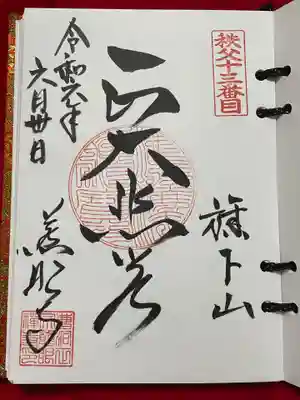 秩父十三番目
旗下山
大悲
令和元年
六月卅日
慈眼寺